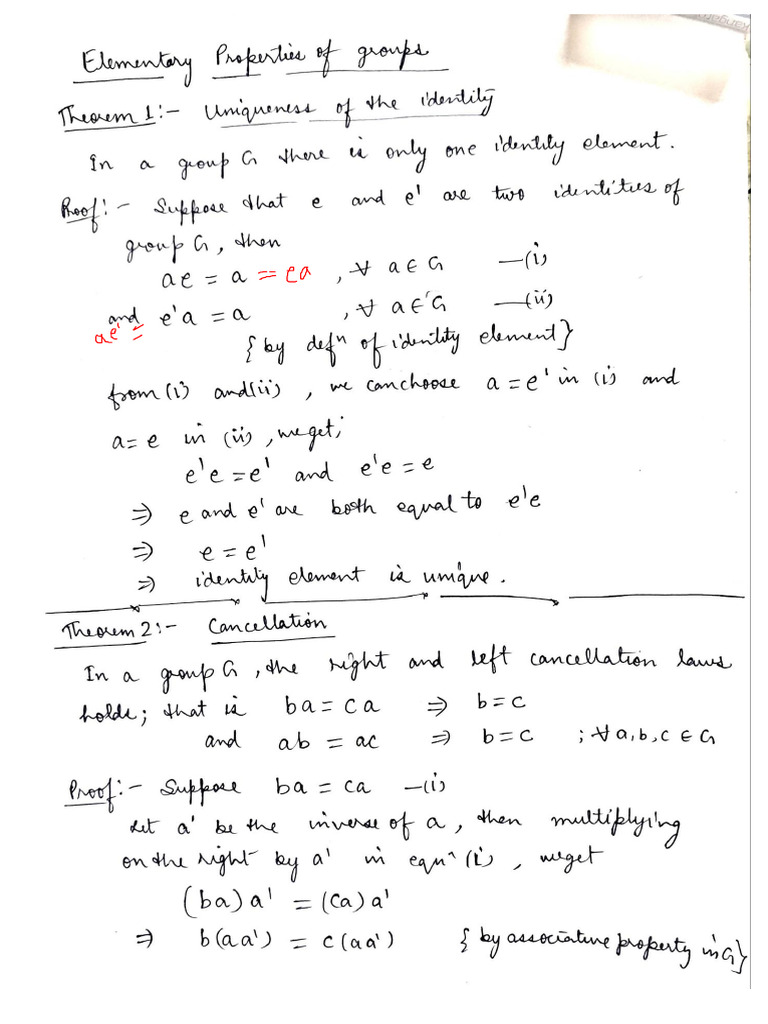 Elementary Properties of groups
Theorem 1:- Uniqueness of the identity
In a group G there is only one identity element.
Proof:- Suppose that e and e' are two identities of
group G, then
ae = a = ea , ∀ a ∈ G —(i)
and e'a = a , ∀ a ∈ G —(ii)
ae' =
{by defⁿ of identity element}
from (i) and (ii) , we can choose a = e' in (i) and
a = e in (ii) , we get;
e'e = e' and e'e = e
⇒ e and e' are both equal to e'e
⇒ e = e'
⇒ identity element is unique.
Theorem 2:- Cancellation
In a group G , the right and left cancellation laws
holds; that is ba = ca ⇒ b = c
and ab = ac ⇒ b = c ; ∀ a, b, c ∈ G
Proof:- Suppose ba = ca —(i)
Let a' be the inverse of a , then multiplying
on the right by a' in eqnⁿ (i) , we get
(ba) a' = (ca) a'
⇒ b(aa') = c(aa') {by associative property in G}